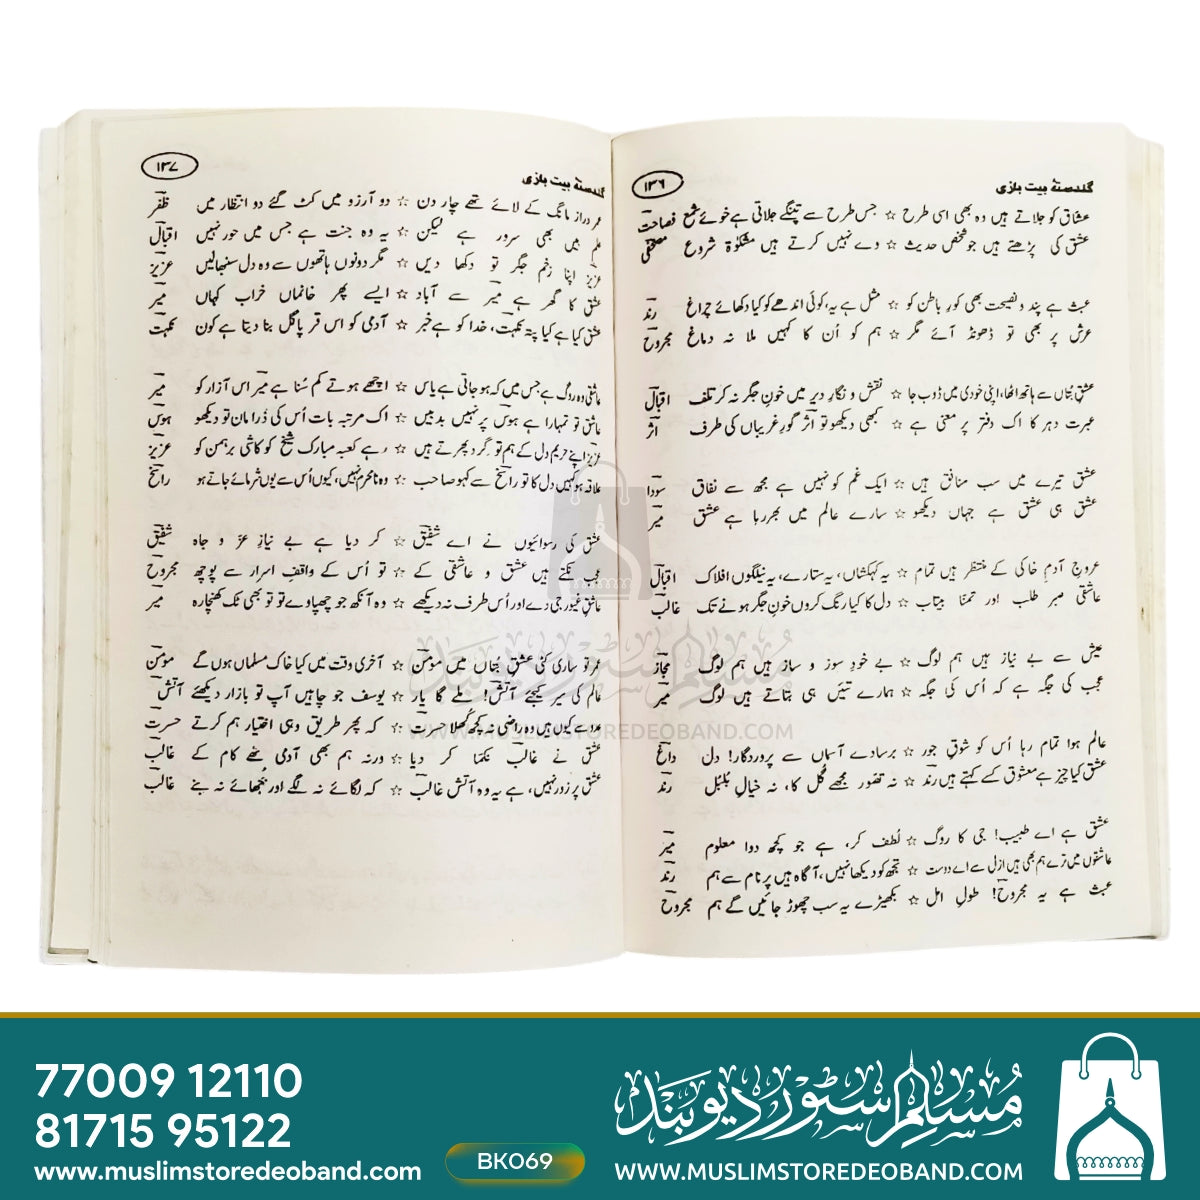 گلدستۂ بیت بازی
۱۳۶
عشاق کو جلاتے ہیں وہ بھی اسی طرح ☆ جس طرح سے پتنگے جلاتی ہے خوئے شمع فصاحت
عشق کی پڑھتے ہیں جو شخص حدیث ☆ وے نہیں کرتے ہیں مشکوٰۃ شروع مصحفی
عبث ہے پند و نصیحت بھی کورِ باطن کو ☆ مثل ہے یہ، کوئی اندھے کو کیا دکھائے چراغ رند
عرش پر بھی تو ڈھونڈ آئے مگر ☆ ہم کو اُن کا کہیں ملا نہ دماغ مجروح
عشقِ بُتاں سے ہاتھ اٹھا، اپنی خودی میں ڈوب جا ☆ نقش و نگارِ دیر میں خونِ جگر نہ کر تلف اقبال
عبرت دہر کا اک دفتر پر معنی ہے ☆ کبھی دیکھو تو اثر گورِ غریباں کی طرف اثر
عشق تیرے میں سب منافق ہیں ☆ ایک غم کو نہیں ہے مجھ سے نفاق سودا
عشق ہی عشق ہے جہاں دیکھو ☆ سارے عالم میں بھر رہا ہے عشق میر
عروجِ آدمِ خاکی کے منتظر ہیں تمام ☆ یہ کہکشاں، یہ ستارے، یہ نیلگوں افلاک اقبال
عاشقی صبر طلب اور تمنا بیتاب ☆ دل کا کیا رنگ کروں خونِ جگر ہونے تک غالب
عیش سے بے نیاز ہیں ہم لوگ ☆ بے خودِ سوز و ساز ہیں ہم لوگ مجاز
عجب کی جگہ ہے کہ اُس کی جگہ ☆ ہمارے تئیں ہی بتاتے ہیں لوگ میر
عالم ہوا تمام رہا اُس کو شوقِ جور ☆ برسادے آسماں سے پروردگار! دل داغ
عشق کیا چیز ہے معشوق کسے کہتے ہیں رند ☆ نہ تصور مجھے گُل کا، نہ خیالِ بلبل رند
عشق ہے اے طبیب! جی کا روگ ☆ لُطف کر، ہے جو کچھ دوا معلوم میر
عاشقوں میں ترے ہم بھی ہیں ازلی سے اے دوست ☆ تجھ کو دیکھا نہیں، آگاہ ہیں پر نام سے ہم رند
عبث ہے یہ مجروح! طولِ امل ☆ بکھیڑے یہ سب چھوڑ جائیں گے ہم مجروح
گلدستۂ بیت بازی
۱۳۷
عمر دراز مانگ کے لائے تھے چار دن ☆ دو آرزو میں کٹ گئے دو انتظار میں ظفر
علم میں بھی سرور ہے لیکن ☆ یہ وہ جنت ہے جس میں حور نہیں اقبال
عزیز اپنا زخمِ جگر تو دکھا دیں ☆ مگر دونوں ہاتھوں سے وہ دل سنبھالیں عزیز
عشق کا گھر ہے میر سے آباد ☆ ایسے پھر خانماں خراب کہاں میر
عشق کیا ہے کیا پتہ نکہت، خدا کو ہے خبر ☆ آدمی کو اس قدر پاگل بنا دیتا ہے کون نکہت
عاشقی وہ روگ ہے جس میں کہ ہو جاتی ہے یاس ☆ اچھے ہوتے کم سُنا ہے میر اس آزار کو میر
عاشق تو تمہارا ہے ہوس پر نہیں بد بیں ☆ اک مرتبہ بات اُس کی ذرا مان تو دیکھو ہوس
عزیز اپنے حریمِ دل کے ہم تو گرد پھرتے ہیں ☆ رہے کعبہ مبارک شیخ کو کاشی برہمن کو عزیز
علاقہ ہو کہیں دل کا تو راسخ سے کہو صاحب ☆ وہ نامحرم نہیں، کیوں اُس سے یوں شرمائے جاتے ہو راسخ
عشق کی رسوائیوں نے اے شفیق ☆ کر دیا ہے بے نیازِ عز و جاہ شفیق
عجب نکتے ہیں عشق و عاشقی کے ☆ تو اُس کے واقفِ اسرار سے پوچھ مجروح
عاشقِ غیور جی دے اور اُس طرف نہ دیکھے ☆ وہ آنکھ جو چھپاوے تو تو بھی ٹک کھنچا رہ میر
عمر تو ساری کٹی عشقِ بُتاں میں مومن ☆ آخری وقت میں کیا خاک مسلماں ہوں گے مومن
عالم کی سیر کیجئے آتش! ملے گا یار ☆ یوسف جو چاہیں آپ تو بازار دیکھئے آتش
عدو سے کیوں ہیں وہ راضی نہ کچھ کُھلا حسرت ☆ کہ پھر طریق وہی اختیار ہم کرتے حسرت
عشق نے غالب نکما کر دیا ☆ ورنہ ہم بھی آدمی تھے کام کے غالب
عشق پر زور نہیں، ہے یہ وہ آتش غالب ☆ کہ لگائے نہ لگے اور بُجھائے نہ بنے غالب
مسلم سٹور دیوبند
WWW.MUSLIMSTOREDEOBAND.COM
77009 12110
81715 95122
www.muslimstoredeoband.com
BK069
مسلم سٹور دیوبند
WWW.MUSLIMSTOREDEOBAND.COM